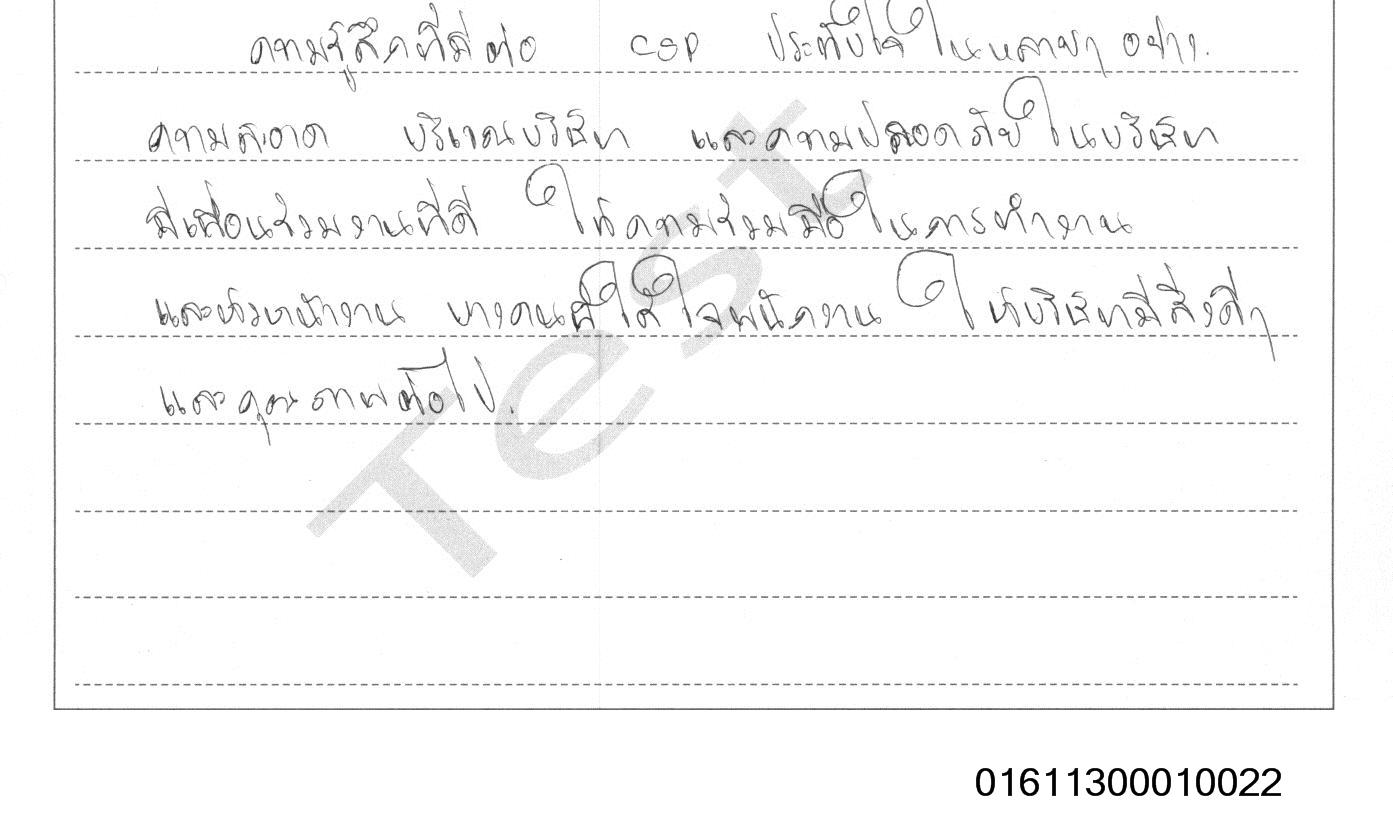 ความรู้สึกที่มีต่อ CSP ประทับใจในหลายๆ อย่าง.
ความสะอาด บริเวณบริษัท และความปลอดภัยในบริษัท
มีเพื่อนร่วมงานที่ดี ให้ความร่วมมือในการทำงาน
และหัวหน้างาน บางคนที่ใส่ใจพนักงาน ให้บริษัทมีสิ่งดีๆ
และคุณภาพต่อไป.
Test
01611300010022